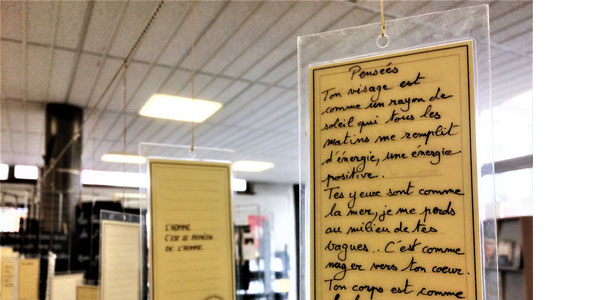 Pensées
Ton visage est
comme un rayon de
soleil qui tous les
matins me remplit
d'énergie, une énergie
positive.
Tes yeux sont comme
la mer, je me perds
au milieu de tes
vagues.. C'est comme
nager vers ton coeur.
Ton corps est comme
L'HOMME.
C'EST LE REMÈDE
DE L'HOMME.